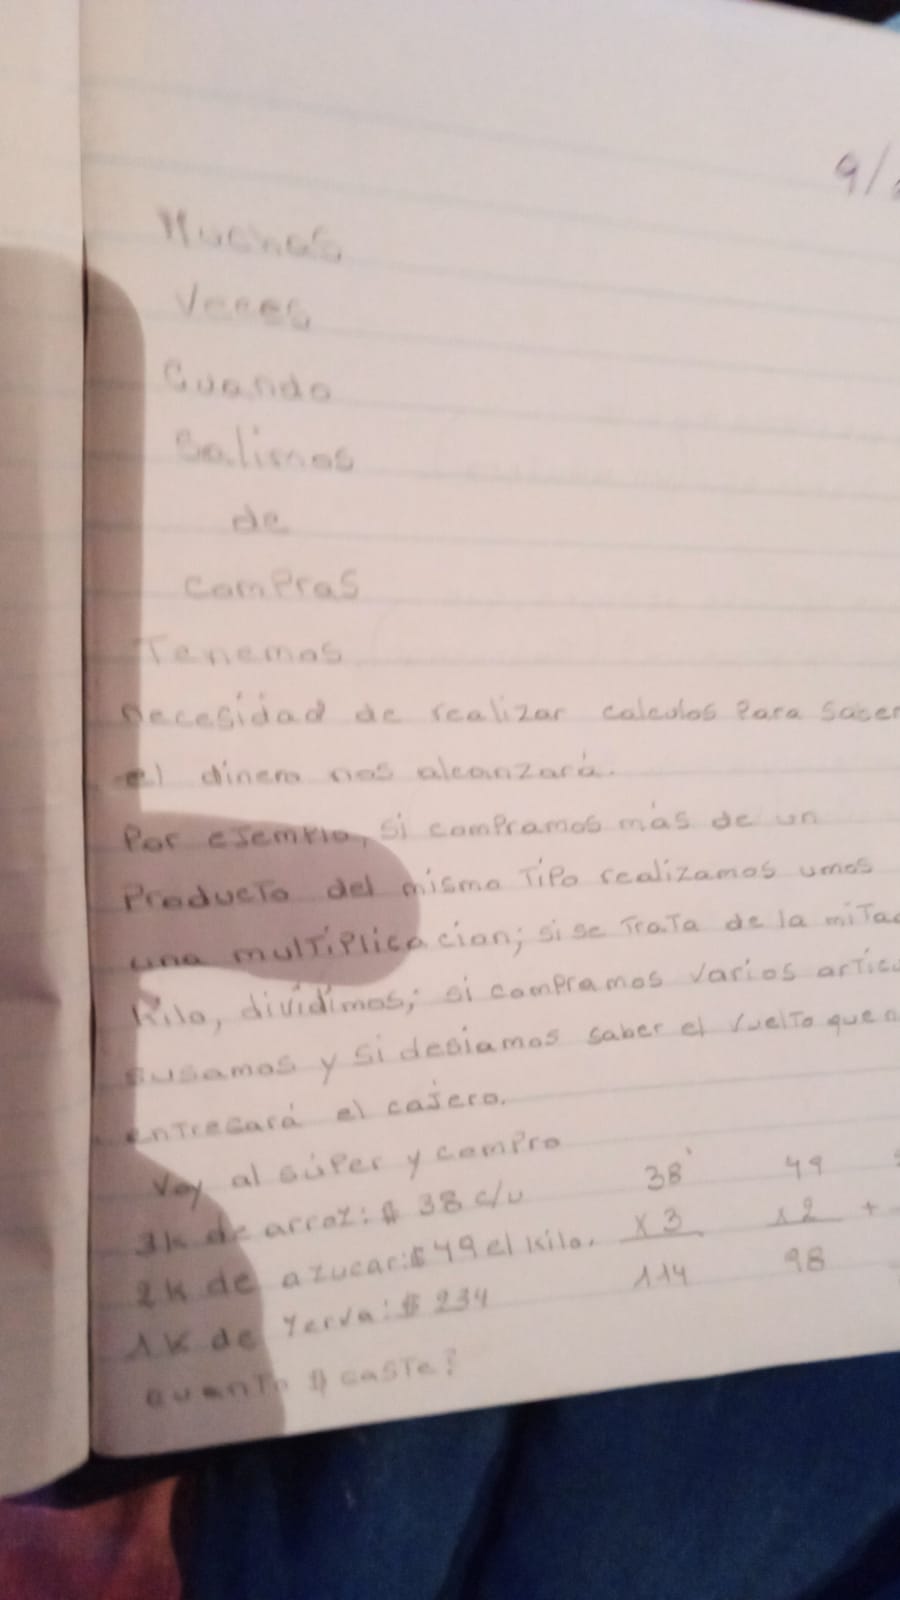 9/
Muchas
Veces
Cuando
Salimos
de
compras
Tenemos
necesidad de realizar calculos para saber
el dinero nos alcanzará.
Por ejemplo, si compramos más de un
Producto del mismo Tipo realizamos umos
una multiplicacion; si se Trata de la mitad
Kilo, dividimos; si compramos varios articu
susamos y si desiamos saber el vuelto que n
entregará el cajero.
Voy al súper y compro
3k de arroz: $ 38 c/u 38 49
2k de azucar: $ 49 el kilo. x 3 x 2 +
1k de Yerva: $ 234 114 98
cuanto $ gaste?